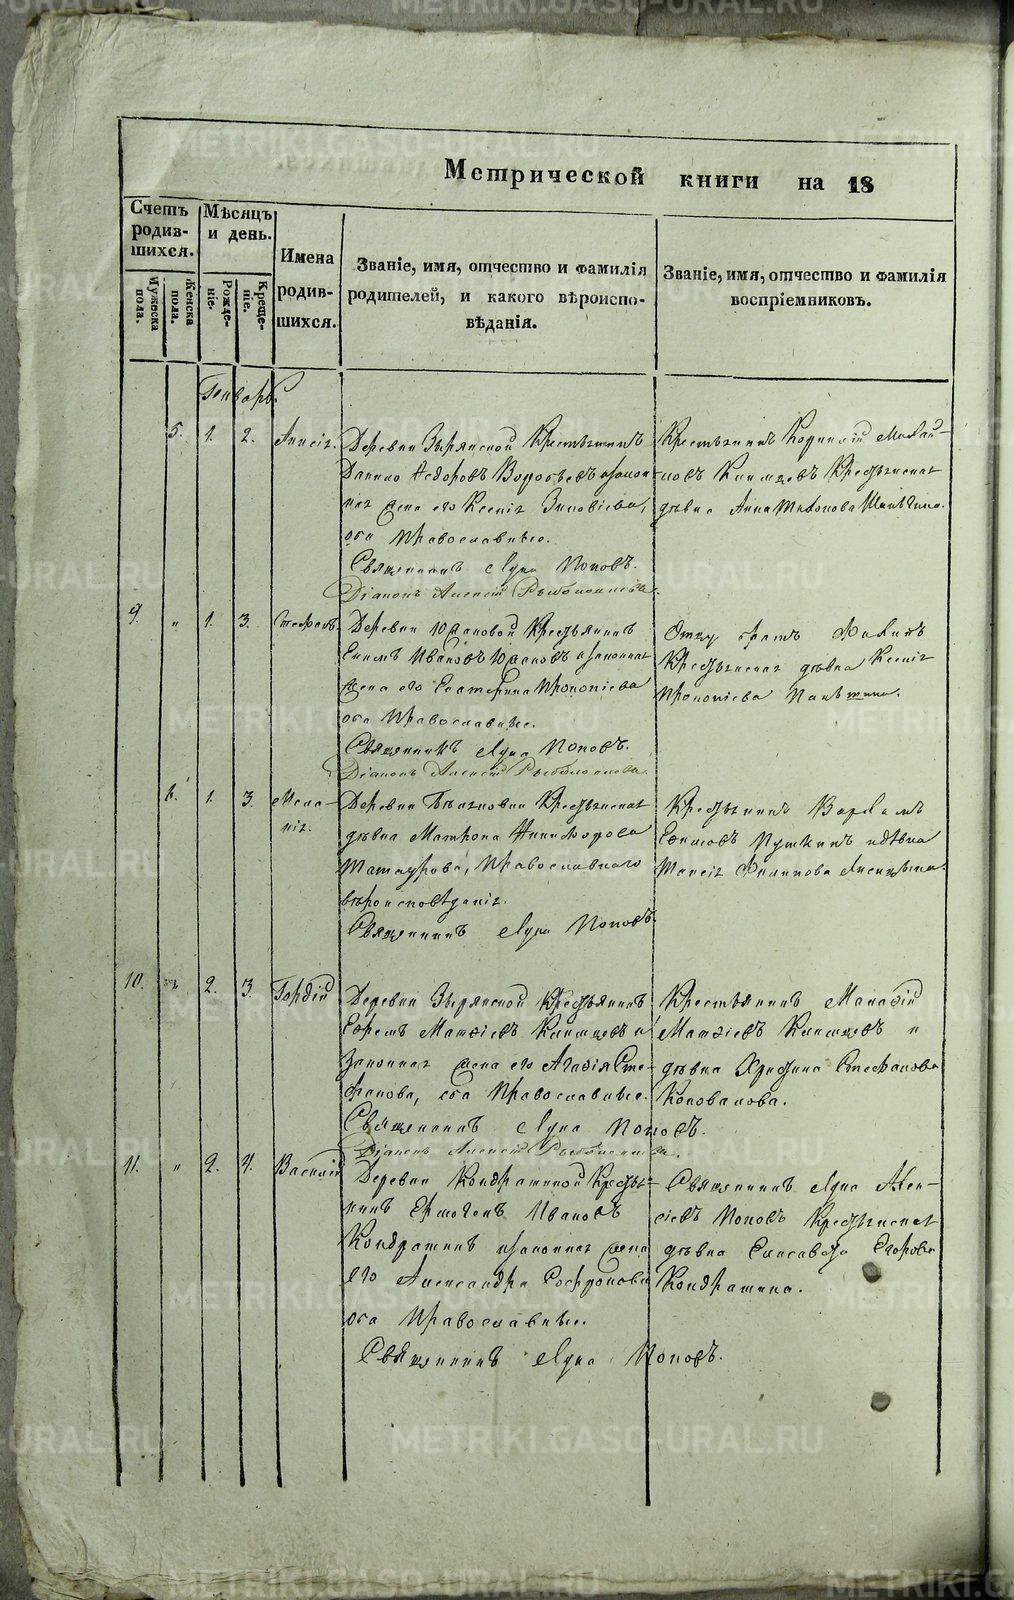 METRIKI.GASO-URAL.RU
Метрической книги на 18
Счетъ родив-шихся.
Мужеска пола.
Женска пола.
Мѣсяцъ и день.
Рожде-ніе.
Креще-ніе.
Имена родив-шихся.
Званіе, имя, отчество и фамилія
родителей, и какого вѣроиспо-
вѣданія.
Званіе, имя, отчество и фамилія
воспріемниковъ.
Генварь
5. 1. 2. Анисія.
Деревни Зырянской Крестьянинъ
Данило Ѳедоровъ Воробьевъ и закон-
ная жена его Ксенія Зиновіева,
оба Православные.
Священникъ Лука Поповъ.
Діаконъ Алексій
Крестьянинъ Корнилій Михай-
ловъ Крестьянская
дѣвка Анна
9. " 1. 3. Стефанъ.
Деревни Южаковой Крестьянинъ
Ивановъ Южаковъ и законная
жена его Екатерина Прокопіева
оба Православные.
Священникъ Лука Поповъ.
Діаконъ Алексій
Отцу братъ
Крестьянская дѣвка Ксенія
Прокопіева
6. 1. 3. Мела-
нія.
Деревни Крестьянская
дѣвка Матрона Никифорова
Татаурова, Православнаго
вѣроисповѣданія.
Священникъ Лука Поповъ.
Крестьянинъ Варлаамъ
Ефимовъ и дѣвка
Таисія Филипова
10. " 2. 3. Гордій
Деревни Зырянской Крестьянинъ
Ефремъ и
законная жена его Агафія Сте-
фанова, оба Православные.
Священникъ Лука Поповъ.
Діаконъ Алексій
Крестьянинъ Малахій
и
дѣвка Христина Стефанова
Коновалова.
11. " 2. 4. Василій
Деревни Кондратиной Крестья-
нинъ Ермогенъ Ивановъ
Кондратинъ и законная жена
его Александра Софронова
оба Православные.
Священникъ Лука Поповъ.
Священникъ Лука Алек-
сіевъ Поповъ Крестьянская
дѣвка Елисавета Егорова
Кондратина.